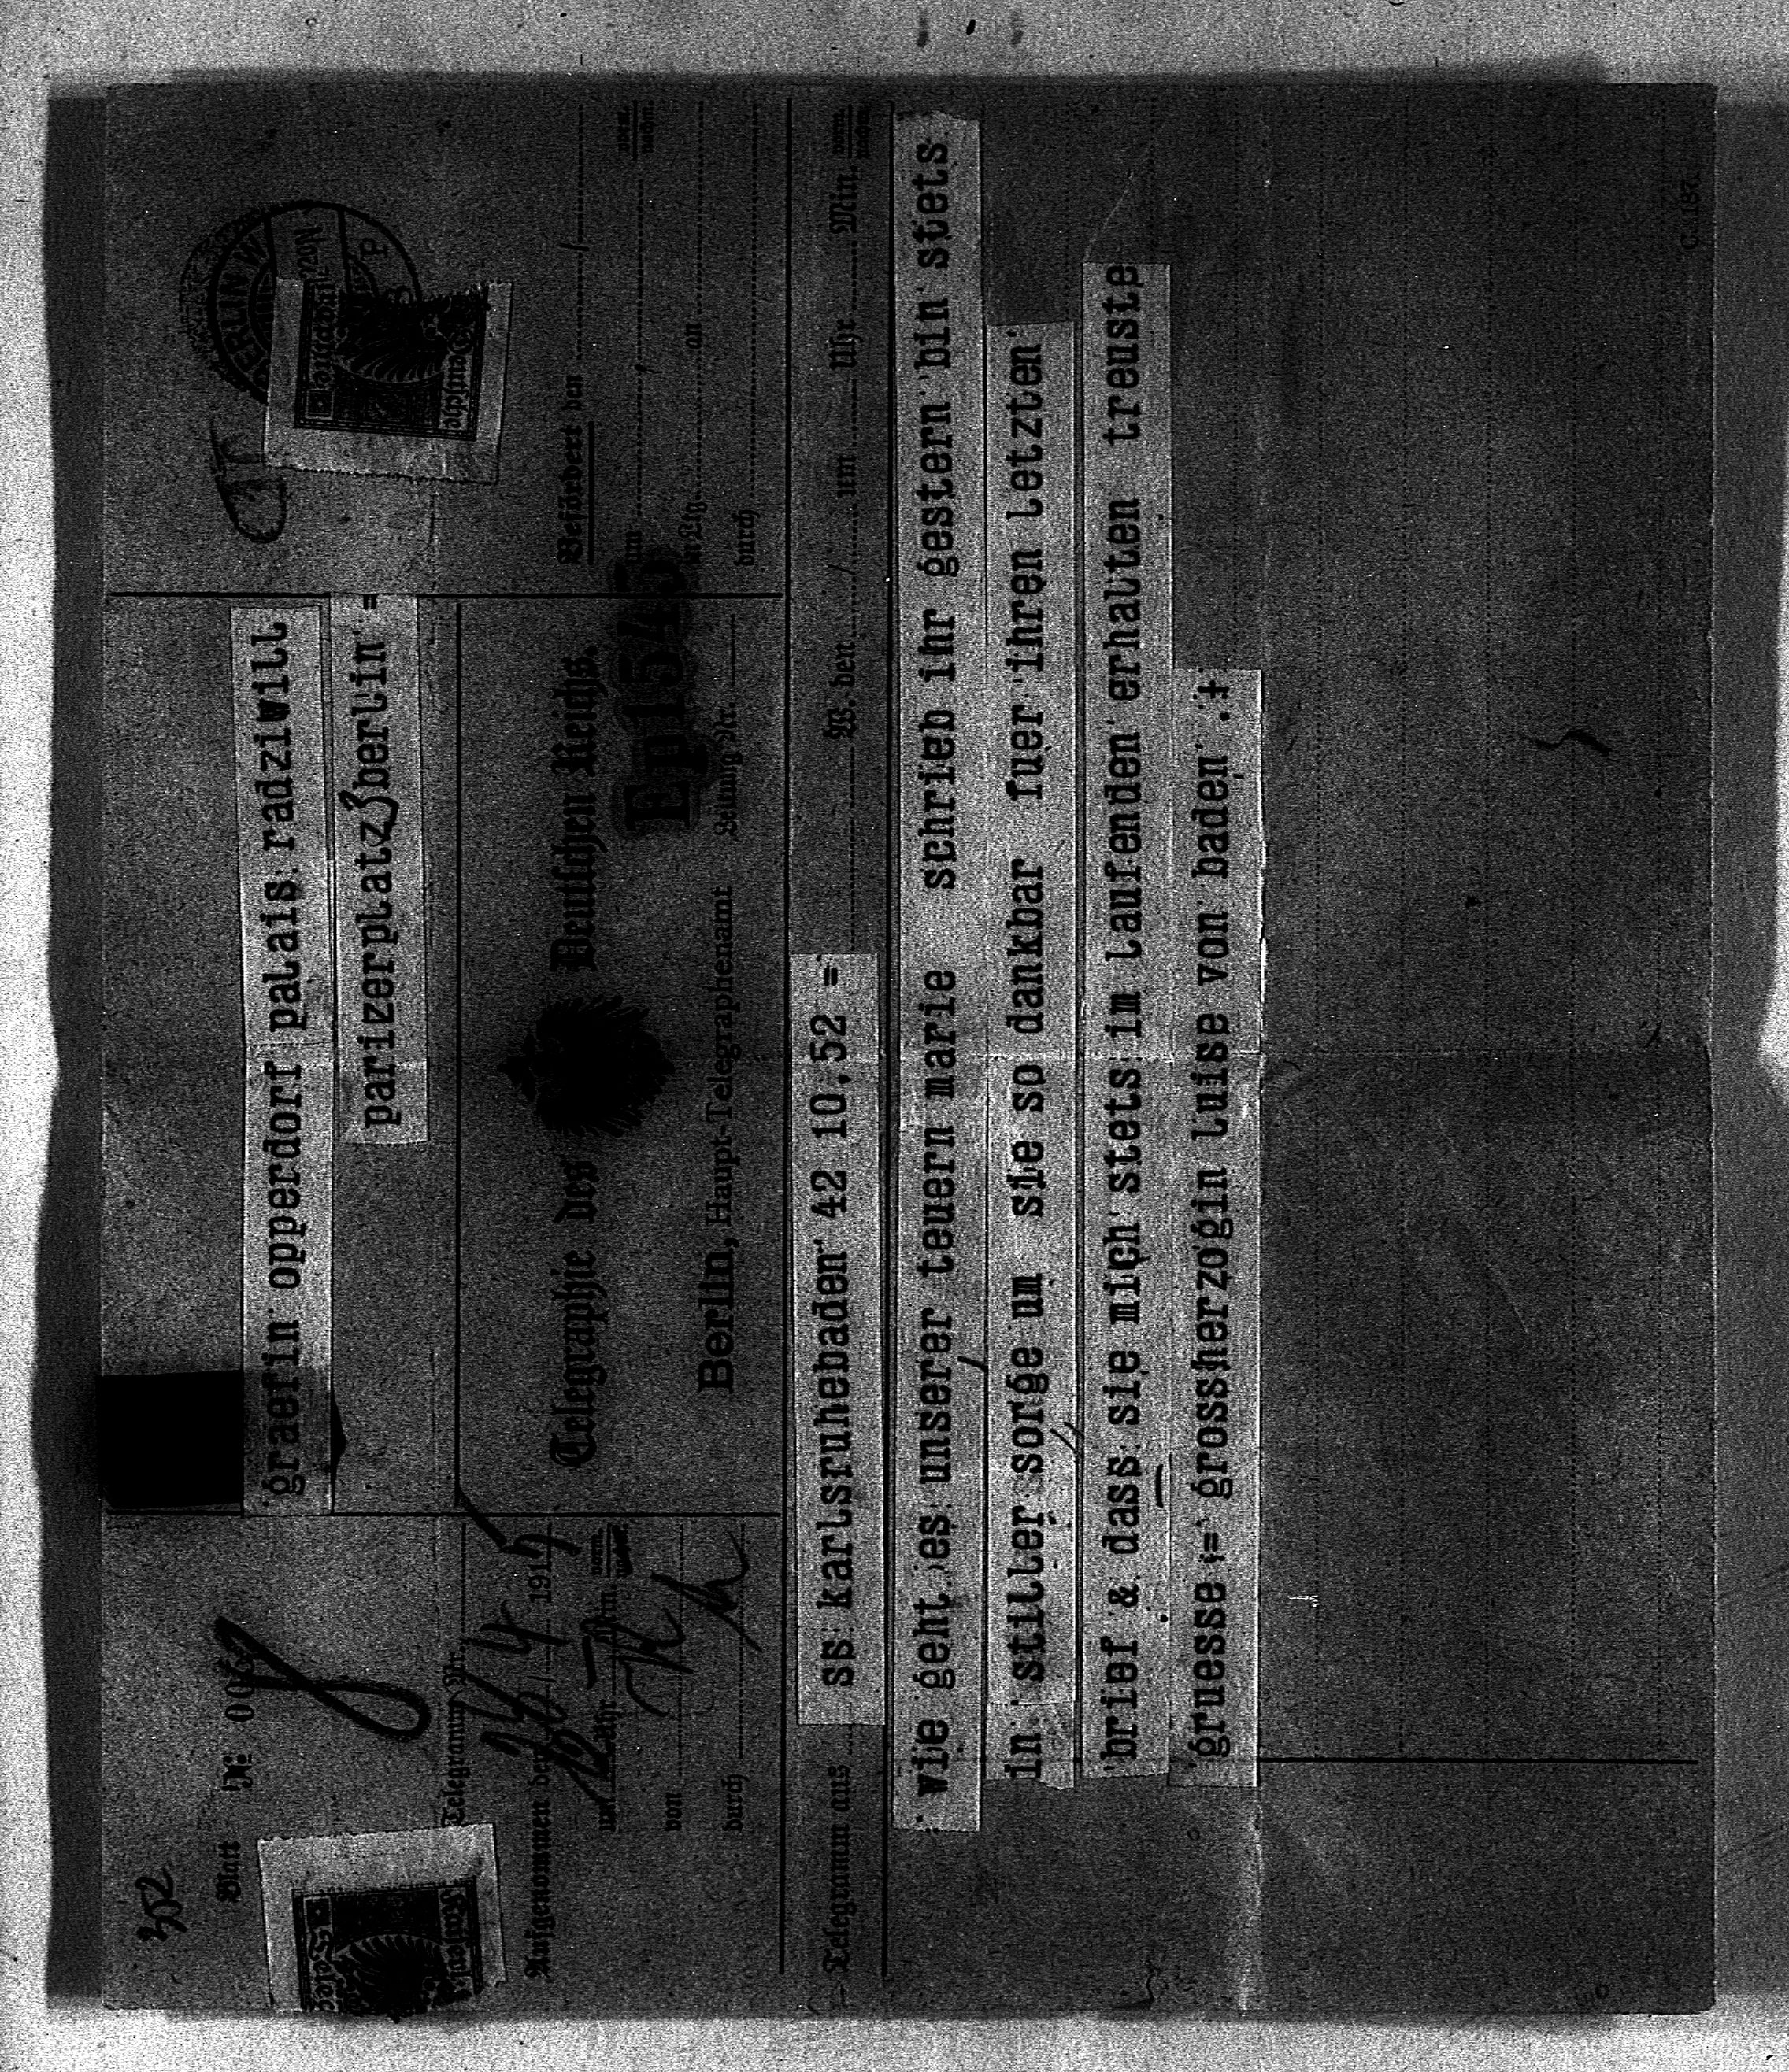 302
Blatt № 006
graefin opperdorf palais radziwill
parizerplatz berlin =
Telegramm Nr.
Aufgenommen den 26/4 1915
um 12 Uhr Min. vorm.
von
durch
Telegraphie des Deutschen Reichs.
Berlin, Haupt-Telegraphenamt
Leitung Nr.
Ep1545
BERLIN W
Befördert den /
vorm.
nachm.
an
durch
Telegramm aus
ss karlsruhebaden 42 10,52 =
W. den / um Uhr Min. vorm. nachm.
wie geht es unserer teuern marie schrieb ihr gestern bin stets
in stiller sorge um sie so dankbar fuer ihren letzten
brief & dass sie mich stets im laufenden erhalten treuste
gruesse = grossherzogin luise von baden .+
C. 187.